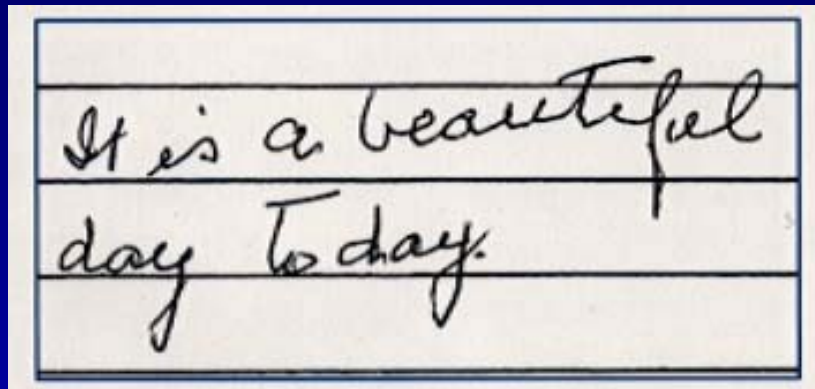 It is a beautiful
day today.